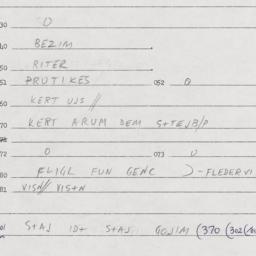 030 0
040 BEZIM
050 RITER
051 BRUTIKES 052 0
060 KERT UJS //
070 KERT ARUM DEM S+TEJB/P
072 0 073 0
080 FLIGL FUN GENC )-FLEDERVI
081 VISN// VIS+N
S+AJ ID+ S+AJ GOJIM (370 (302/